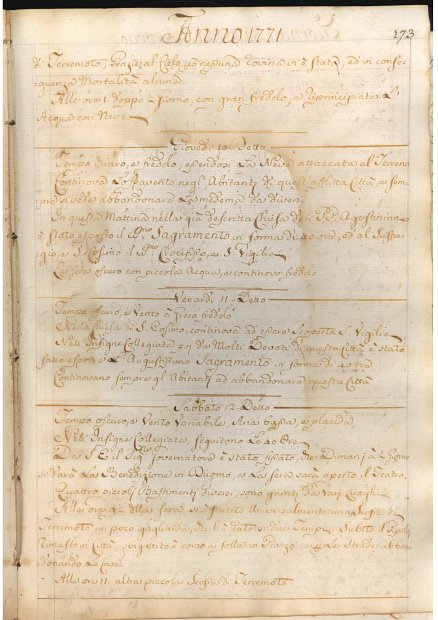 Anno 1771
173
di Terremoto, Grazie al Cielo, nessuna rovina vi è stata, ed in conse
quenza Mortalità alcuna.
Alle ore 1 doppo Giorno, con gran freddo, è riprincipiata L'
Acqua con Neve
Giovedì 10 Detto
Tempo chiaro, e freddo, essendosi La Neve attaccata al Terreno
Continova Lo pavento negl' Abitanti di questa afflita Città, e sem
pre si vede abbandonare La medema da diversi.
In questa Mattina nella già descritta Chiesa delli PP. Agostiniani
è stato esposto il Sagramento in forma di 40 ore, ed al Suffra
gio, e S. Cosimo il Crocifisso, e S. Vigilia
La sera oscuro con piccola Acqua, e continovo freddo
Venardì 11 Detto
Tempo oscuro, e Vento a freddo
Nella Chiesa di S. Cosimo continova ad essere esposta S. Vigilia
Nell' Insigne Collegiata da Molti Devoti di questa Città è stato
fatto esporre L' Augustissimo Sagramento in forma di 40 ore
Continovano sempre gl' Abitanti ad abbandonare questa Città
Sabbato 12 Detto
Tempo oscuro, e Vento variabile, Aria bassa, e placida.
Nell' Insigne Collegiata seguitono Le 40 Ore
Da S. Ecc. Sig. Governatore è stato Dimani a Giorno
si darà La Benedizione in Duomo, e La sera sarà aperto il Teatro.
Quattro piccoli Bastimenti diversi, sono quinti da varj Luoghi
Alle ore 4 della sera si è sentito Universalmente una Scossa di
Terremoto in poco gagliarda, che ha dato in due Tempi. Subito il Popolo
rimasto in Città, e corso a folla in Piazza, e Le Strade, abban
donando Le Case.
Alle ore 11 altra piccola Scossa di Terremoto